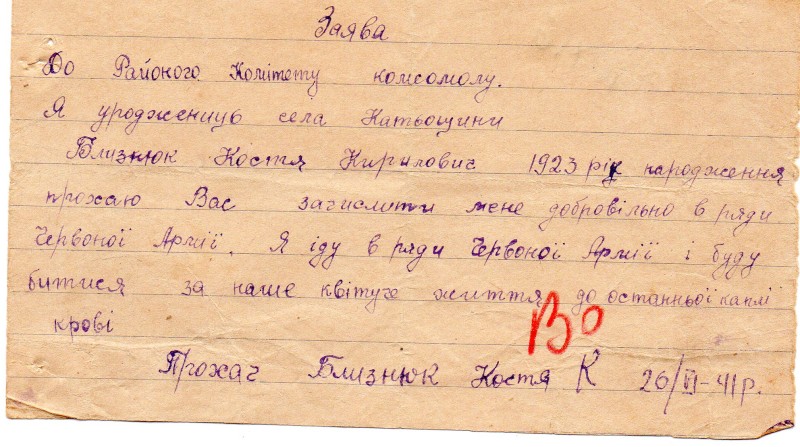 Заява
До Районого Комітету комсомолу.
Я уродженицъ села Катьощини
Близнюк Костя Кирилович 1923 рік народження
прохаю Вас зачислити мене добровільно в ряди
Червоної Армії. Я іду в ряди Червоної Армії і буду
битися за наше квітуче життя до останньої каплі
крові
Во
Прохач Близнюк Костя К 26/VI-41 р.